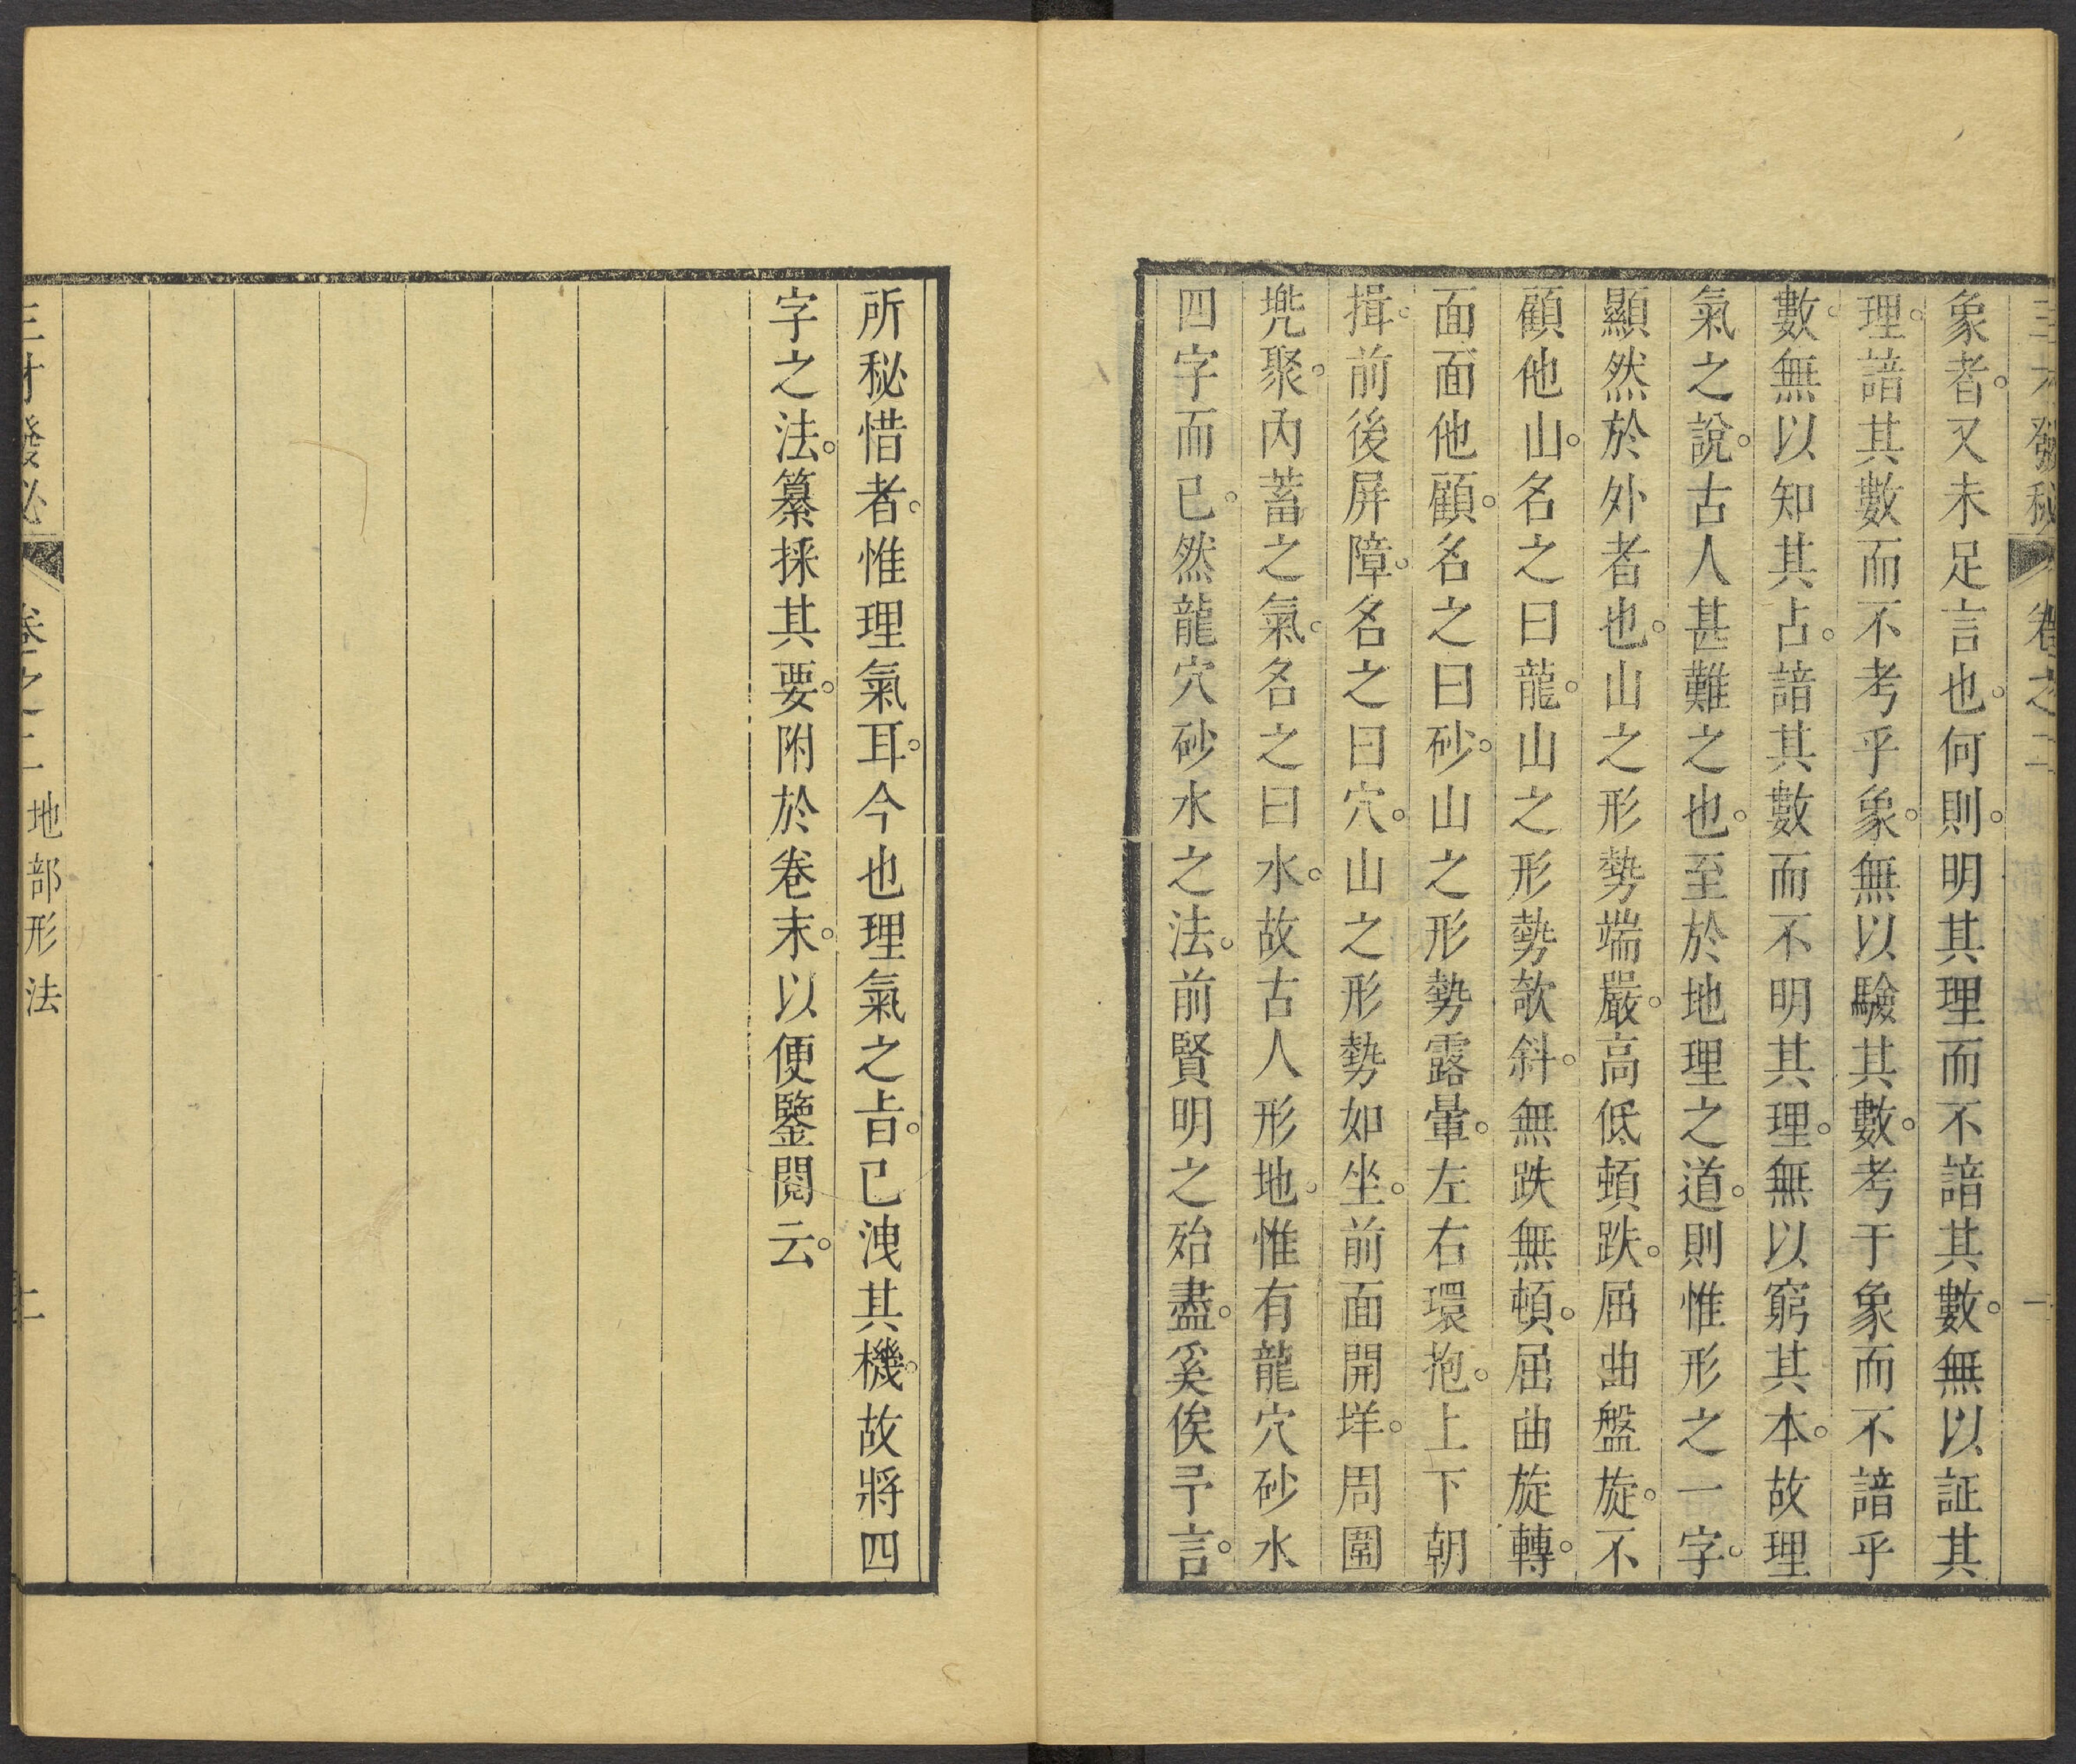 三才發秘 卷之二 一
象者。又未足言也。何則。明其理而不諳其數。無以証其
理。諳其數而不考乎象。無以驗其數。考于象而不諳乎
數。無以知其占。諳其數而不明其理。無以窮其本。故理
氣之說。古人甚難之也。至於地理之道。則惟形之一字。
顯然於外者也。山之形勢端嚴。高低頓跌。屈曲盤旋。不
顧他山。名之曰龍。山之形勢欹斜。無跌無頓。屈曲旋轉。
面面他顧。名之曰砂。山之形勢露暈。左右環抱。上下朝
揖。前後屏障。名之曰穴。山之形勢如坐。前面開垟。周圍
兠聚。內蓄之氣。名之曰水。故古人形地。惟有龍穴砂水
四字而已。然龍穴砂水之法。前賢明之殆盡。奚俟予言。
所秘惜者。惟理氣耳。今也理氣之旨。已洩其機。故將四
字之法。纂採其要。附於卷末。以便鑒閱云。
三才發秘 卷之二 地部形法 二